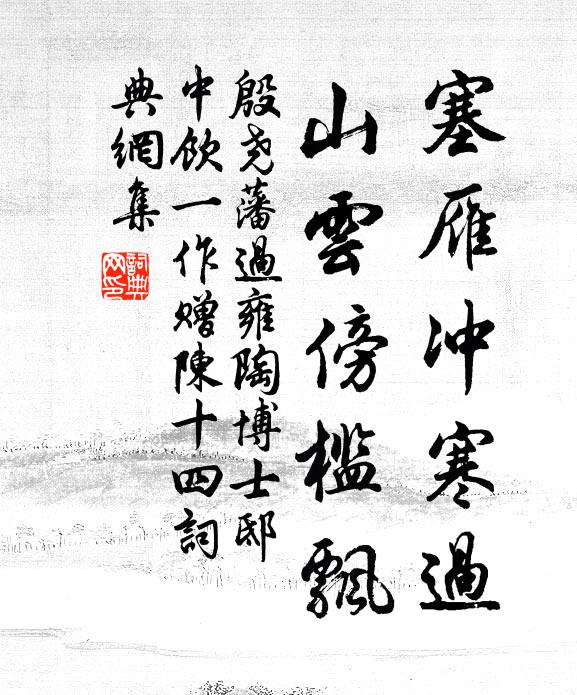 塞雁冲寒過
山雲傍檻飄
殷尧藩過雍陶博士邸
中飲一作贈陳十四詞
典網集
詞典
网印